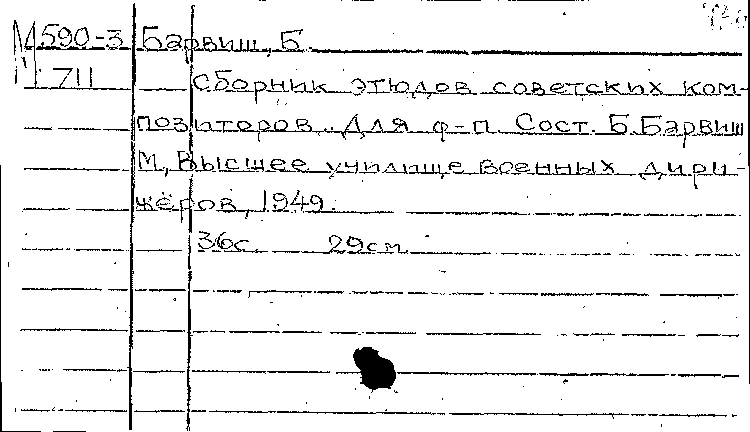 М 590-3 Барвиш, Б.
711 Сборник этюдов советских ком-
позиторов. Для ф-п. Сост. Б. Барвиш
М., Высшее училище военных дири-
жёров, 1949.
36с. 29см.